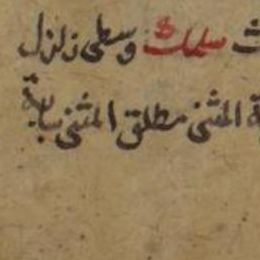 سلمك وسطى زلزل
المثنى مطلق المثنى سبابة